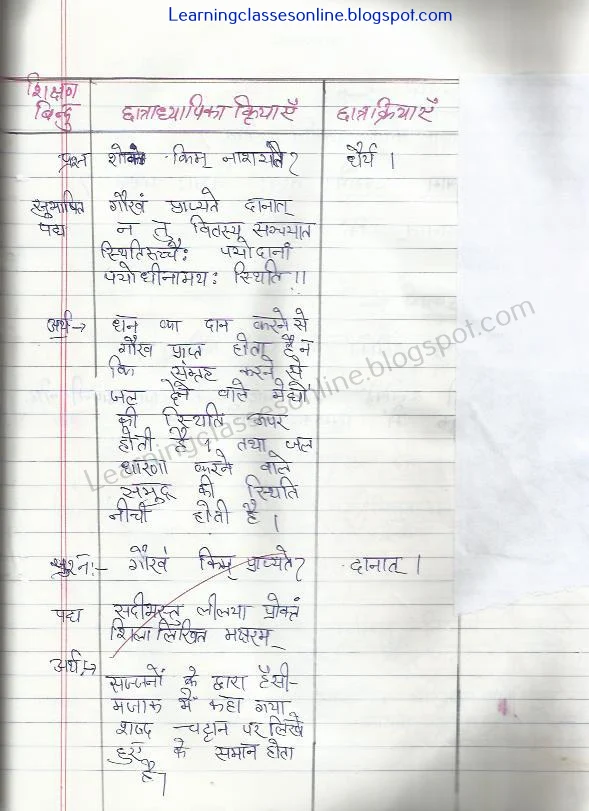 Learningclassesonline.blogspot.com
शिक्षण बिन्दु छात्राध्यापिका क्रियाएँ छात्र क्रियाएँ
प्रश्न शोकः किम् नाशयते? धैर्य ।
सुभाषित गौरवं प्राप्यते दानात्
पद्य न तु वितस्य सञ्चयात
स्थितिरुच्चैः पयोदानां
पयोधीनामधः स्थिति ।।
अर्थ → धन का दान करने से
गौरव प्राप्त होता है न
कि संग्रह करने से
जल देने वाले मेघों
की स्थिति ऊपर
होती है । तथा जल
धारण करने वाले
समुद्र की स्थिति
नीची होती है ।
प्रश्न:- गौरवं किम् प्राप्यते? दानात् ।
पद्य सदीभस्तु लीलया प्रोक्तं
शिला लिखित मक्षरम्
अर्थ:→
सज्जनों के द्वारा हँसी-
मजाक में कहा गया
शब्द चट्टान पर लिखे
हुए के समान होता
है ।
Learningclassesonline.blogspot.com